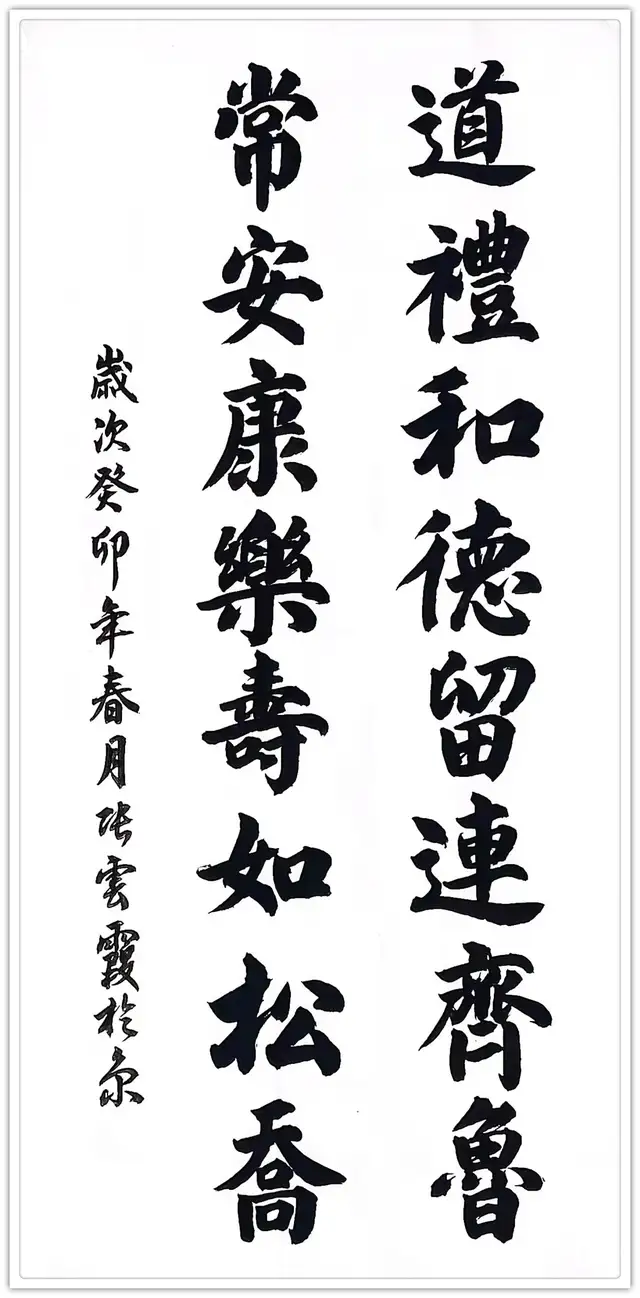 道禮和德留連齊魯
常安康樂壽如松喬
歲次癸卯年春月張雲霞於京